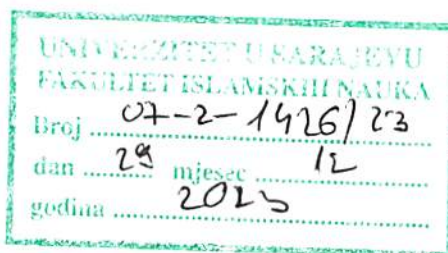 UNIVERZITET U SARAJEVU
FAKULTET ISLAMSKIH NAUKA
Broj 07-2-1426/23
dan 29 mjesec 12
godina 2023